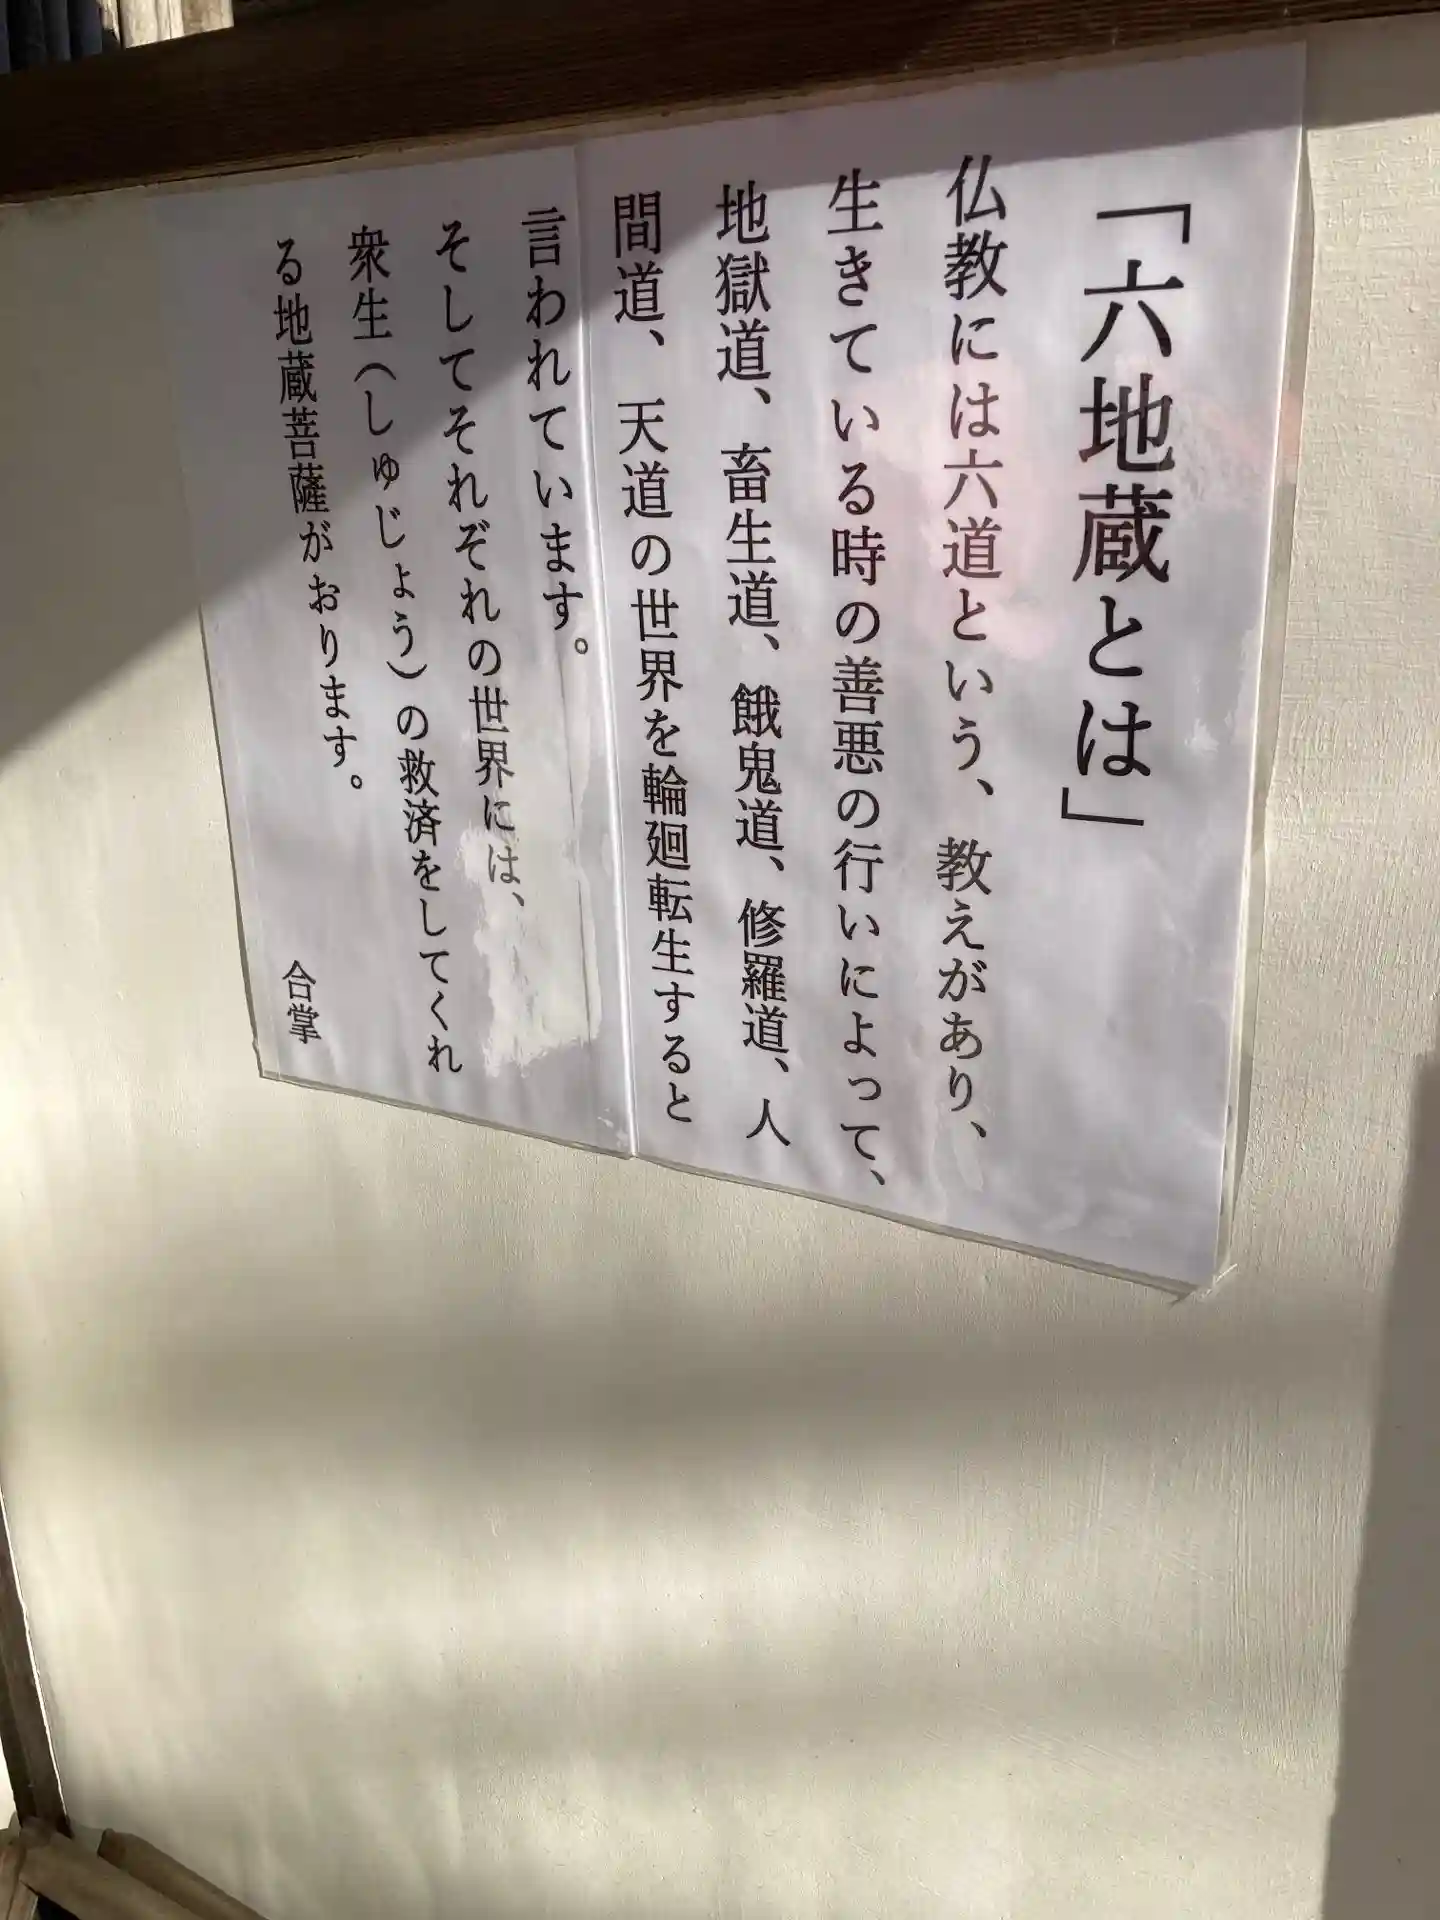 「六地蔵とは」
仏教には六道という、教えがあり、
生きている時の善悪の行いによって、
地獄道、畜生道、餓鬼道、修羅道、人
間道、天道の世界を輪廻転生すると
言われています。
そしてそれぞれの世界には、
衆生（しゅじょう）の救済をしてくれ
る地蔵菩薩がおります。
合掌